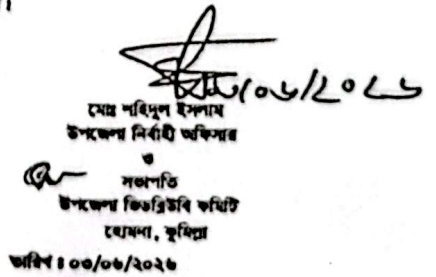 /০৬/২০২৬
মোঃ শহিদুল ইসলাম
উপজেলা নির্বাহী অফিসার
ও
সভাপতি
উপজেলা ভিডব্লিউবি কমিটি
হোমনা, কুমিল্লা
তারিখ : ০৩/০৬/২০২৬